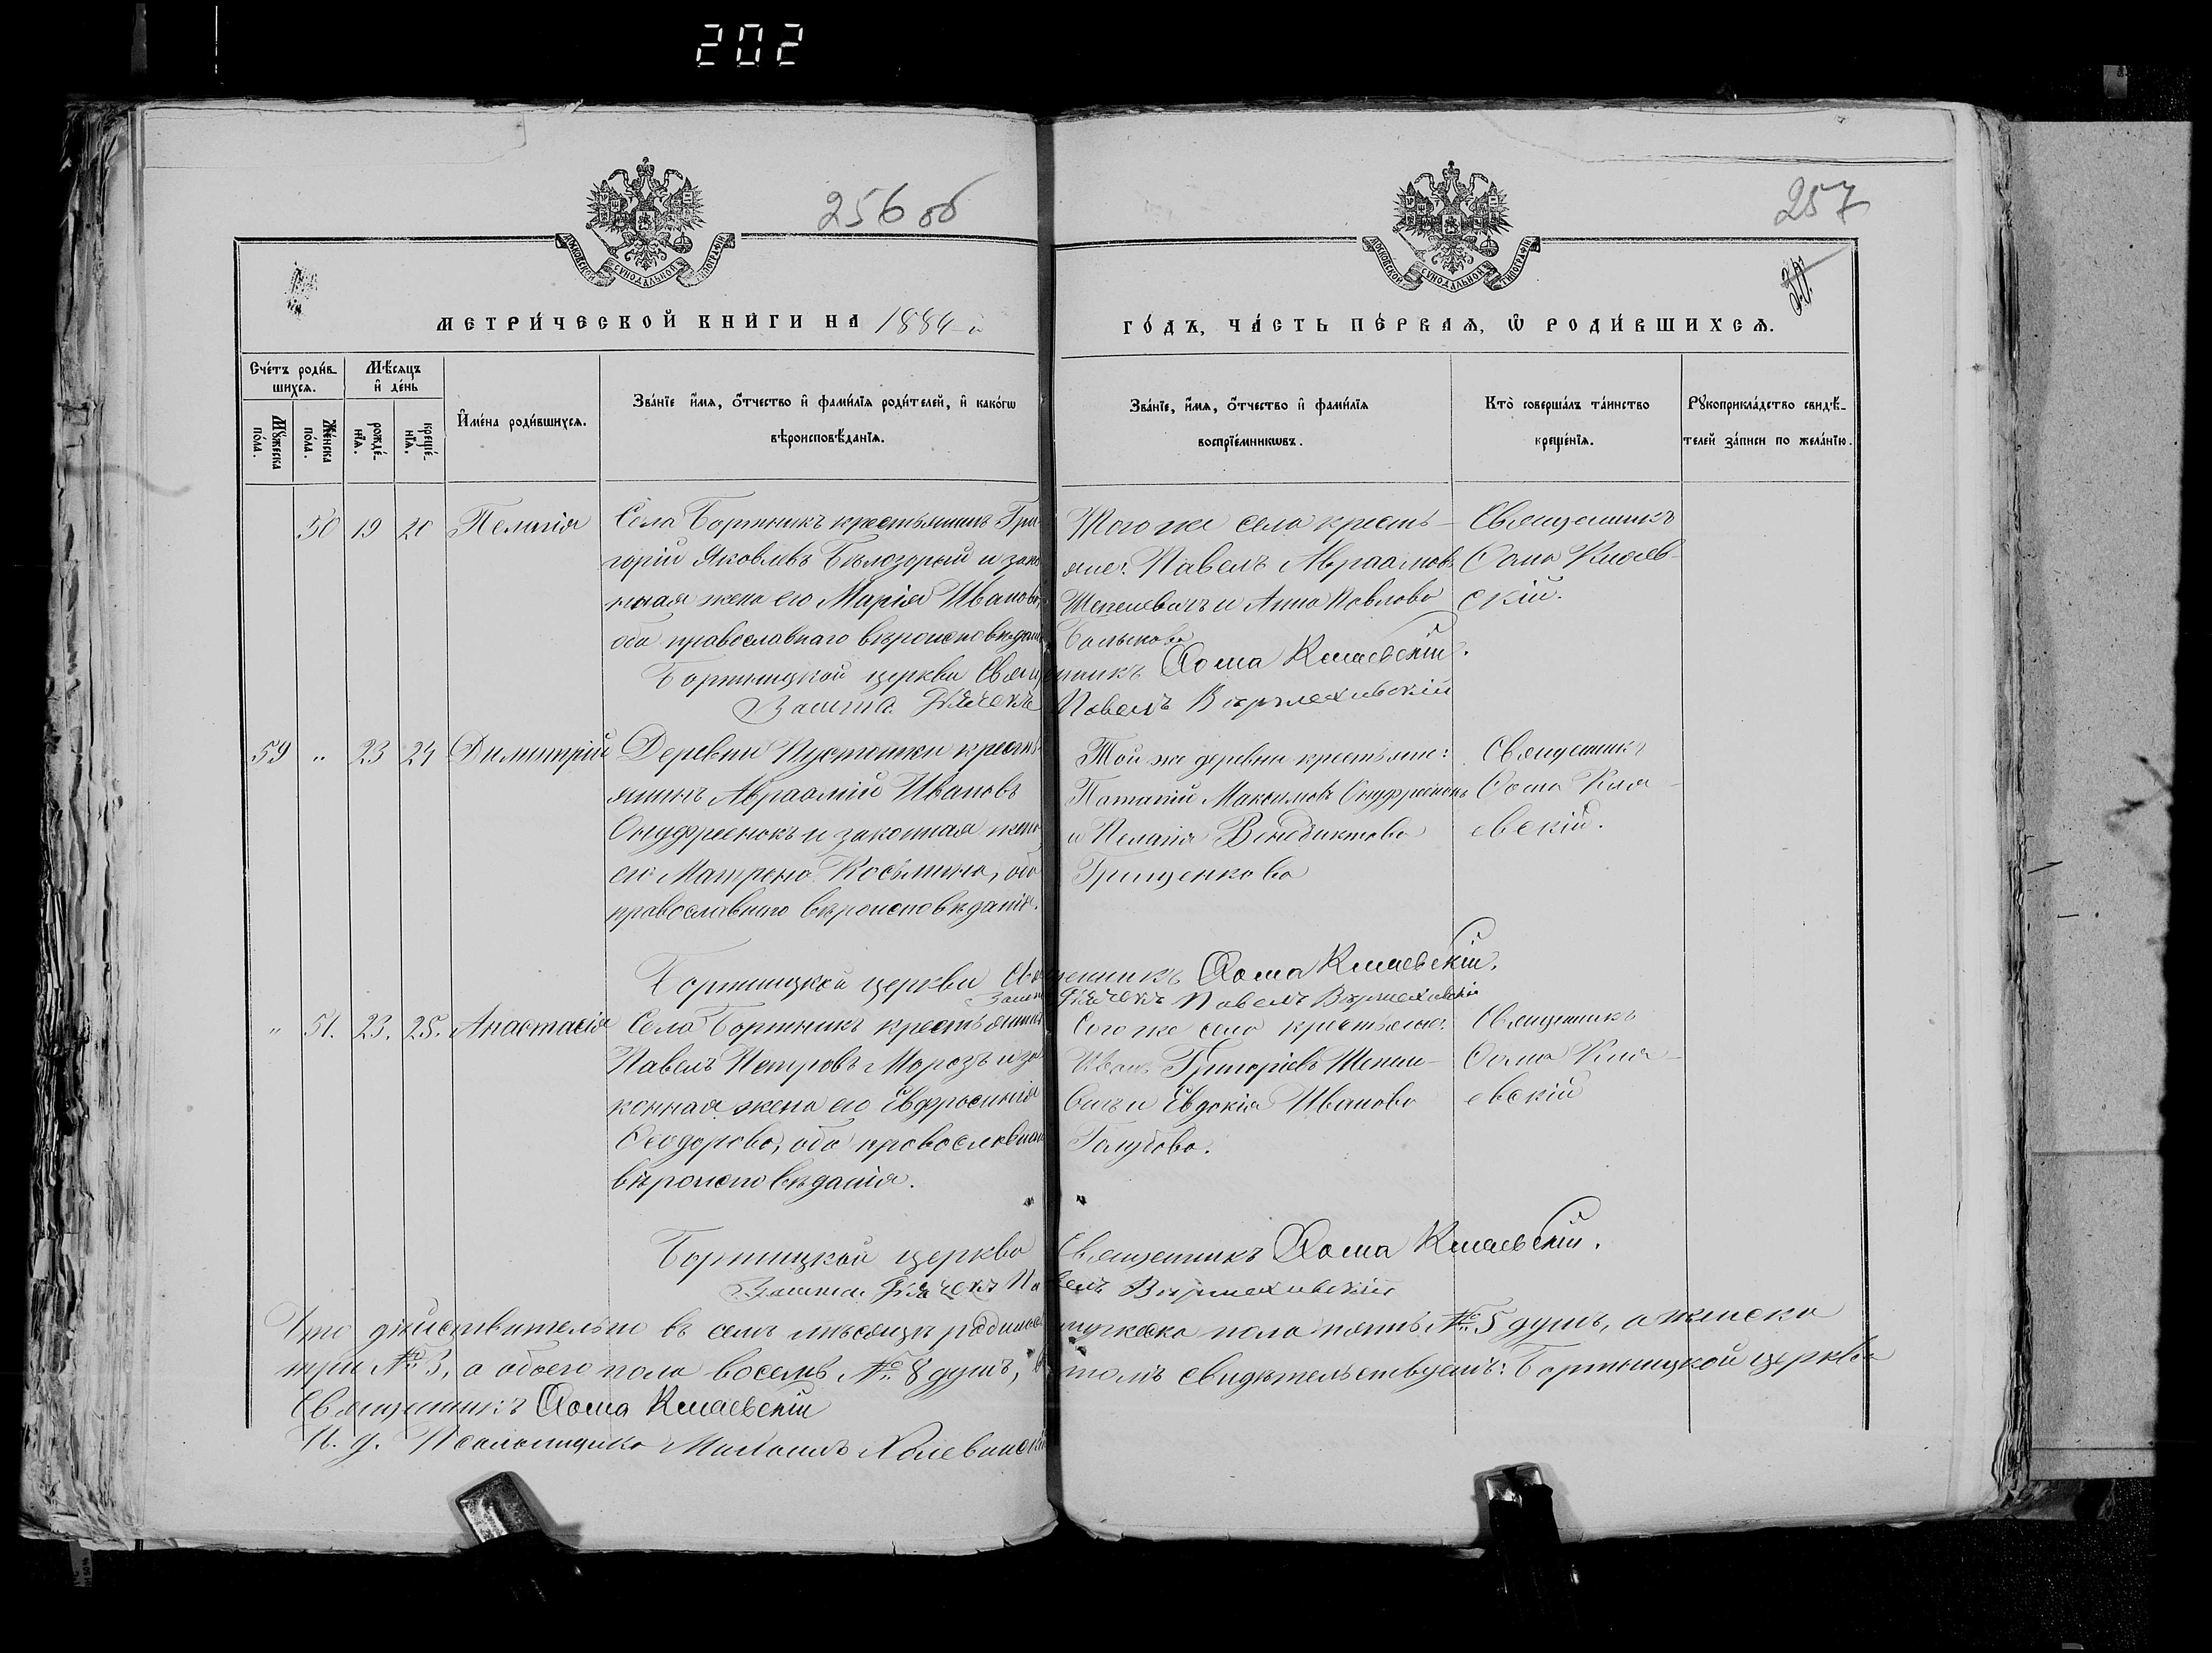 202
256 об
257
МОСКОВСКОЙ СѴНОДАЛЬНОЙ ТИПОГРАФІИ
МОСКОВСКОЙ СѴНОДАЛЬНОЙ ТИПОГРАФІИ
МЕТРИ́ЧЕСКОЙ КНИ́ГИ НА 1884-й
ГО́ДЪ, ЧА́СТЬ ПЕ́РВАѦ, Ѡ РОДИ́ВШИХСѦ.
Сче́тъ роди́вшихсѧ.
Мꙋ́жеска по́ла.
Же́нска по́ла.
Мѣ́сѧцъ и҆ де́нь
рожде́нїѧ.
креще́нїѧ.
И҆мена̀ роди́вшихсѧ.
Зва́нїе и҆́мѧ, ѻ҆́тчество и҆ фами́лїѧ роди́телей, и҆ како́гѡ
вѣроисповѣ́данїѧ.
Зва́нїе, и҆́мѧ, ѻ҆́тчество и҆ фами́лїѧ
воспрїе́мникѡвъ.
Кто̀ соверша́лъ та́инство
креще́нїѧ.
Рꙋкоприкла́дство свидѣ́телей за́писи по жела́нїю.
50 19 20 Пелагія
Села Бортникъ крестьянинъ Гри-
горій Яковлевъ Бѣлозорый и зако
нная жена его Марія Иванова,
оба православнаго вѣроисповѣданія
Того же села кресть-
яне: Павелъ Авраамовъ
Шепелевичъ и Анна Павлова
Священникъ
Ѳома Кмаев-
скій.
Бортницкой церкви Священникъ Ѳома Кмаевскій.
Зашта. Дьячекъ Павелъ
59 " 23 24 Димитрій
Деревни Пустошки кресть-
янинъ Авраамій Ивановъ
Онуфреенокъ и законная жена
его Матрена Косьмина, оба
православнаго вѣроисповѣданія.
Той же деревни крестьяне:
Потапій Максимовъ Онуфреенокъ
и Пелагія Венедиктова
Грищенкова
Священникъ
Ѳома Кма-
евскій.
Бортницкой церкви Священникъ Ѳома Кмаевскій.
Зашт Дьячекъ Павелъ
" 51. 23. 25. Анастасія
Села Бортникъ крестьянинъ
Павелъ Петровъ Морозъ и за
конная жена его Евфросинія
Ѳеодорова, оба православнаго
вѣроисповѣданія.
Сего же села крестьяне:
Иванъ Григоріевъ Шепеле-
вичъ и Евдокія Иванова
Голубова.
Священникъ
Ѳома Кма-
евскій
Бортницкой церкви Священникъ Ѳома Кмаевскій.
Зашта. Дьячекъ Павелъ
Что дѣйствительно въ семъ мѣсяцѣ родилось мужеска пола пять № 5 душъ, а женска
три № 3, а обоего пола восемь № 8 душъ, въ томъ свидѣтельствуемъ: Бортницкой церкви
Священникъ Ѳома Кмаевскій
И. д. Псаломщика Михаилъ Холевинскій